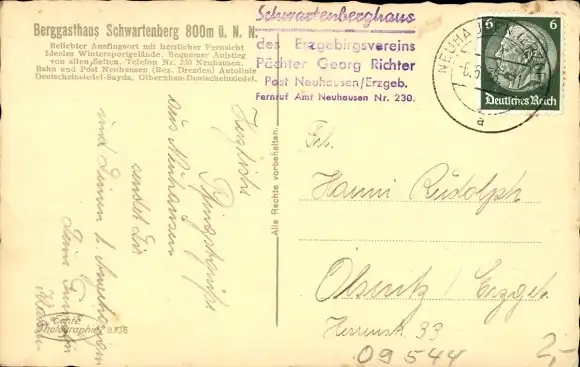 Berggasthaus Schwartenberg 800m ü. N. N.
Beliebter Ausflugsort mit herrlicher Fernsicht
Ideales Wintersportgelände. Bequemer Aufstieg
von allen Seiten. Telefon Nr. 230 Neuhausen.
Bahn und Post Neuhausen (Bez. Dresden) Autolinie
Deutscheinsiedel-Sayda, Olbernhau-Deutscheinsiedel.
Schwartenberghaus
des Erzgebirgsvereins
Pächter Georg Richter
Post Neuhausen/Erzgeb.
Fernruf Amt Neuhausen Nr. 230.
NEUHAUSEN
a
6 6
Deutsches Reich
Herzliche
Pfingstgrüße
aus Neuhausen
sendet Dir
und Deinen l. Angehörigen
Deine
Echte
Photographie
Alle Rechte vorbehalten.
Frl.
Hanni Rudolph
Olsnitz / Erzgeb.
Herrenstr. 33
09544
2,-